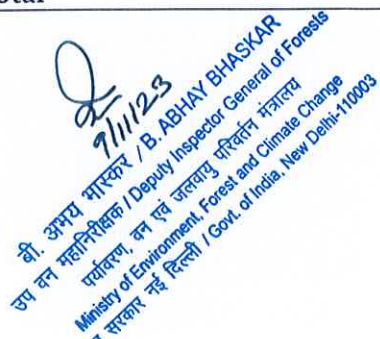 9/11/23
बी. अभय भास्कर / B. ABHAY BHASKAR
उप वन महानिरीक्षक / Deputy Inspector General of Forests
पर्यावरण, वन एवं जलवायु परिवर्तन मंत्रालय
Ministry of Environment, Forest and Climate Change
सरकार नई दिल्ली / Govt. of India, New Delhi-110003